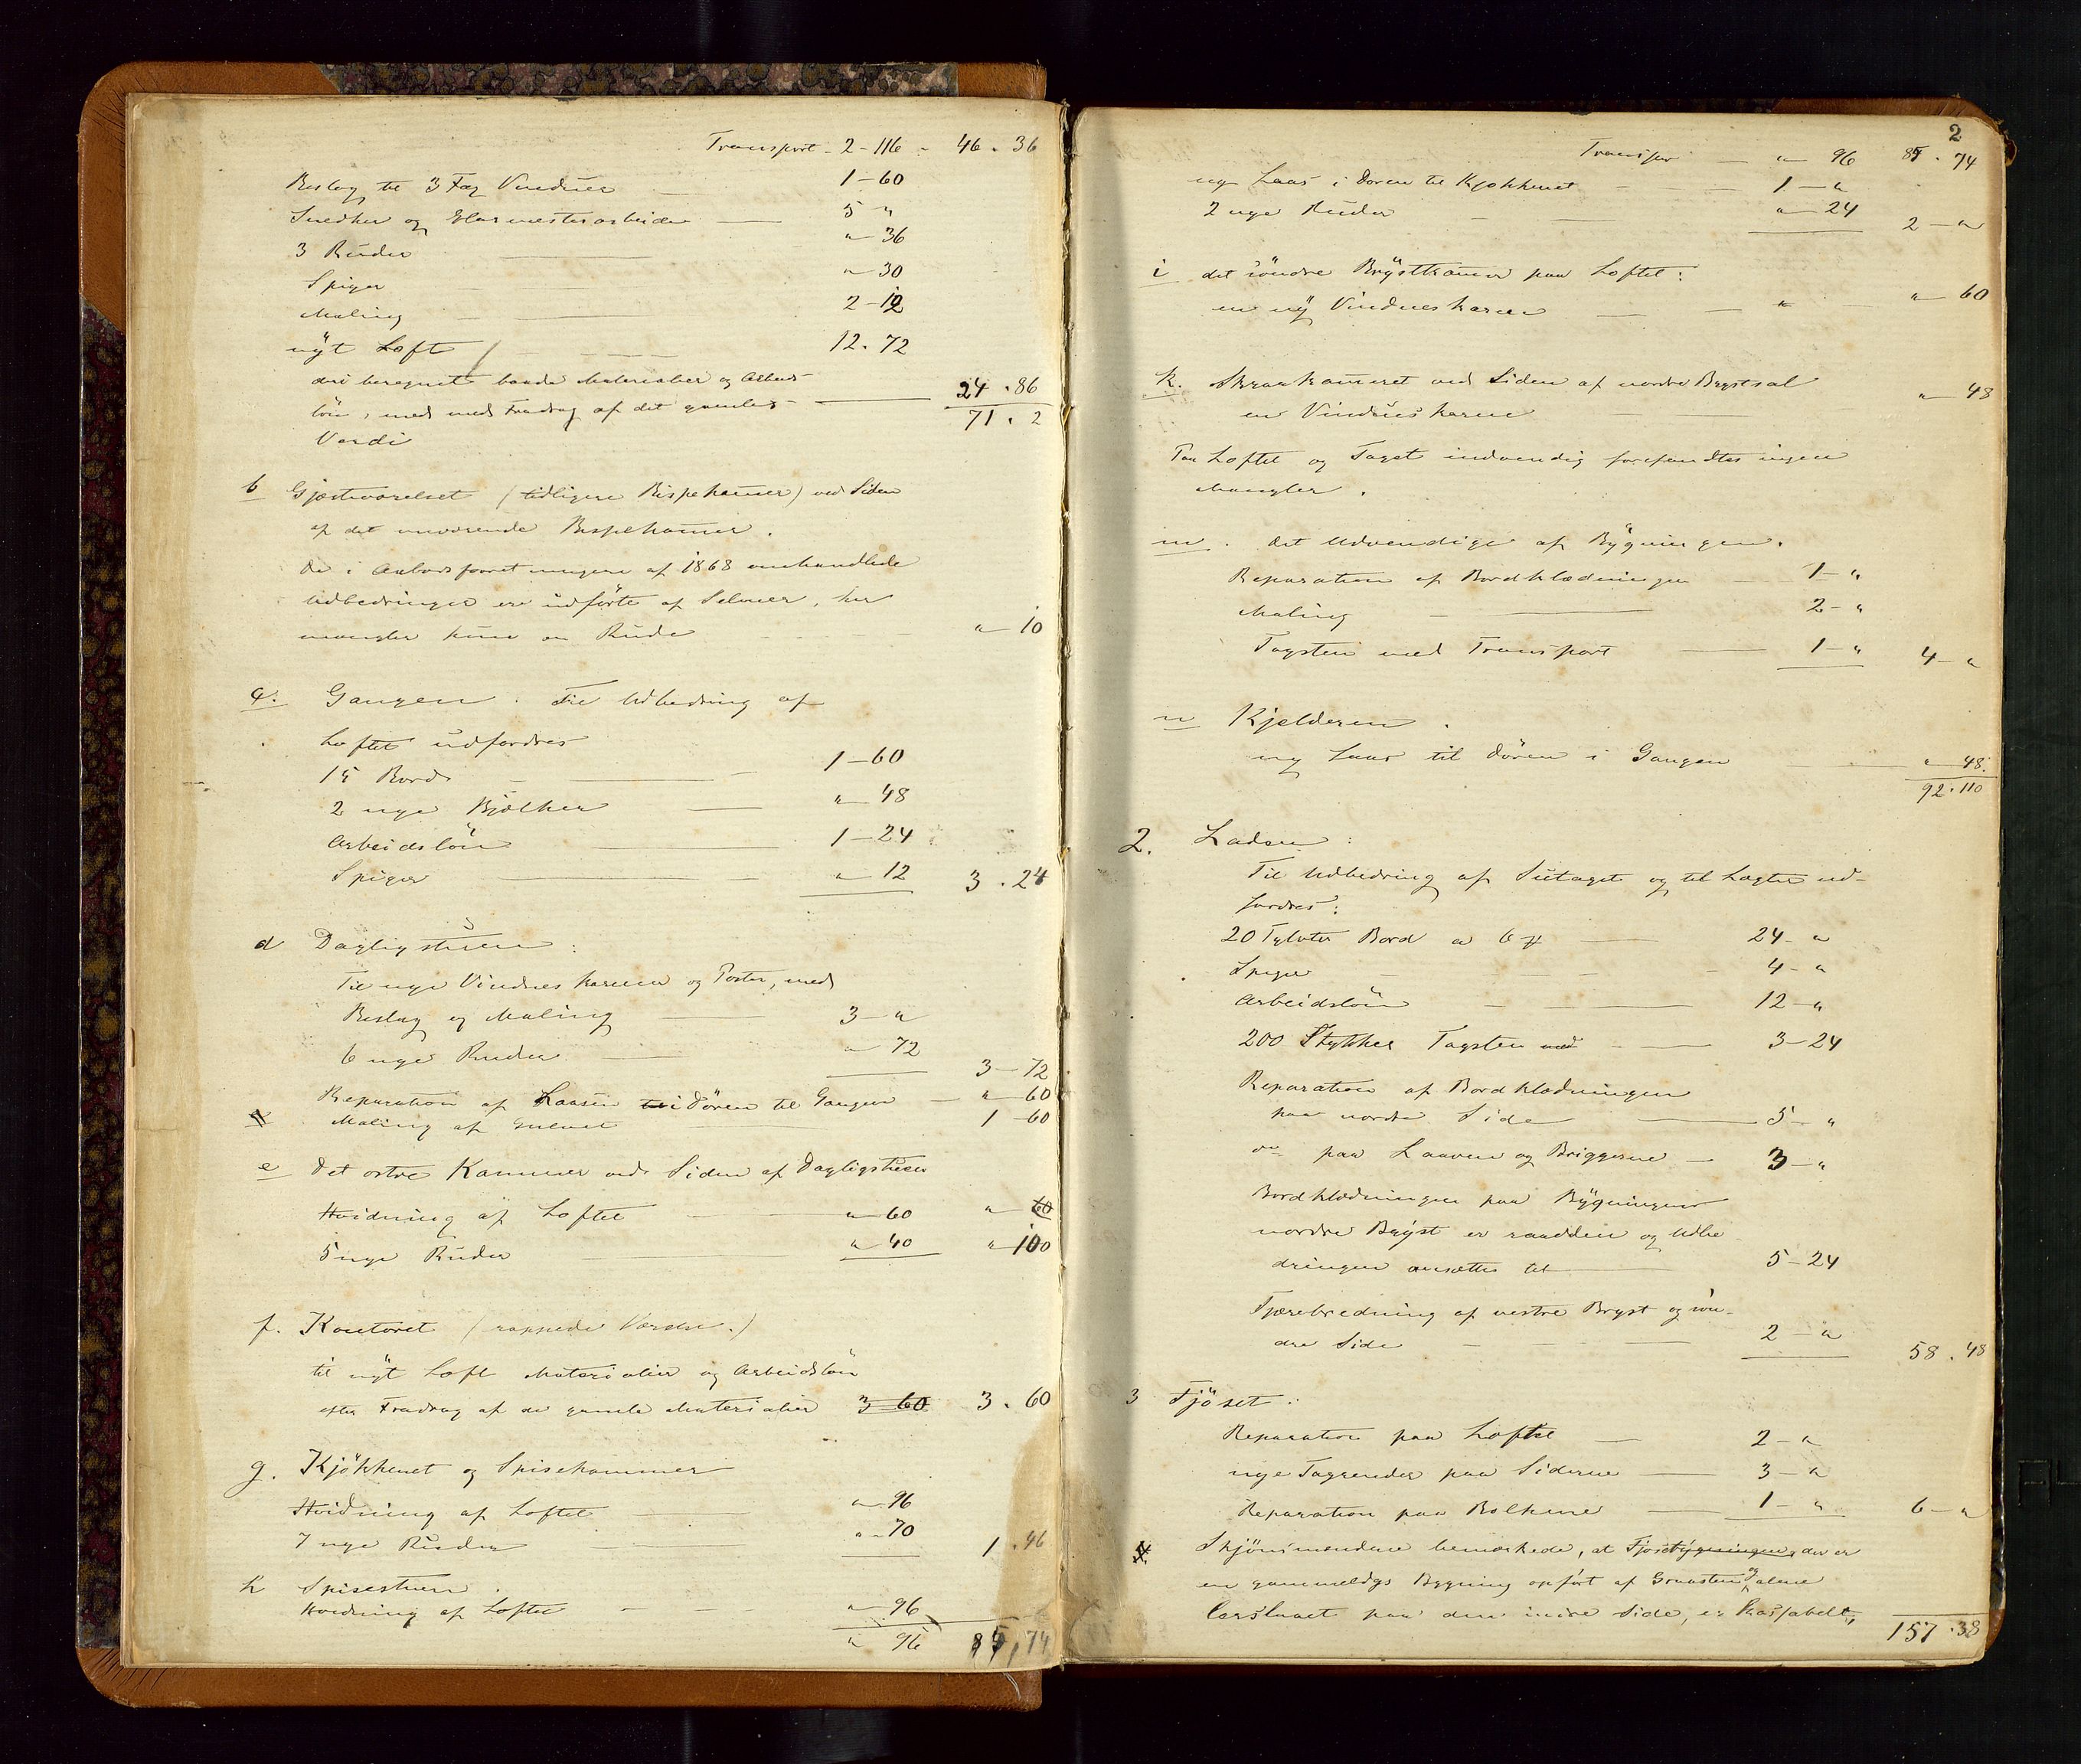 Transport - 2 - 116 - 46 . 36
Beslag til 3 Fag Vinduer — 1 - 60
Snedker og Glarmesterarbeide — 5 "
3 Ruder — " - 36
Spiger — " - 30
Maling — 2 - 12
nyt Loft — 12 . 72
deri beregnet baade Materialier og Arbeids-
løn, med med Fradrag af det gamles — 24 . 86
Værdi 71 . 2
b Gjæsteværelset (tidligere Bispekamer) ved Siden
af det nuværende Bispekamer.
De i Aabodsforretningen af 1868 omhandlede
Udbedringer ere udførte af Selmer, her
mangler kun en Rude " - 10
c. Gangen. Til Udbedring af
Loftet udfordres
15 Bord — 1 - 60
2 nye Bjelker — " - 48
Arbeidsløn — 1 - 24
Spiger — " - 12 3 . 24
d Dagligstuen:
Til nye Vindues karmer og Poster, med
Beslag og Maling — 3 - "
6 nye Ruder — " - 72 3 - 72
Reparation af Laasen til i Døren til Gangen — " - 60
Maling af Gulvet 1 - 60
e Det østre Kammer ved Siden af Dagligstuen
Hvidning af Loftet — " - 60 " - 60
5 nye Ruder — " - 40 " - 100
f. Kontoret (rappede Værelse.)
til nyt Loft Materialier og Arbeidsløn
efter Fradrag af de gamle Materialier 3 60 3 . 60
g. Kjøkkenet og Spisekammer
Hvidning af Loftet — " - 96
7 nye Ruder — " - 70 1 . 46
h Spisestuen.
Hvidning af Loftet — " - 96
" 96 85, 74
2
Transpor — " 96 85 . 74
ny Laas i Døren til Kjøkkenet — 1 - "
2 nye Ruder — " - 24 2 - "
i det søndre Brystkamer paa Loftet:
en ny Vindueskarm — " " - 60
k. Skraakameret ved Siden af nordre Brystsal
en Vindueskarm " - 48
Paa Loftet og Taget indvendig forefandtes ingen
Mangler.
m. Det Udvendige af Bygningen.
Reparation af Bordklædningen — 1 - "
Maling — 2 - "
Tagsten med Transport — 1 - " 4 - "
n Kjelderen.
ny Laas til Døren i Gangen — " - 48.
92 . 110
2. Laden:
Til Udbedring af Sutaget og til Lægter ud-
fordres:
20 Tylvter Bord a 6 — 24 - "
Spiger — 4 - "
Arbeidsløn — 12 - "
200 Stykker Tagsten med — 3 - 24
Reparation af Bordklædningen
paa nordre Side — 5 - "
do paa Laaven og Briggerne — 3 - "
Bordklædningen paa Bygningens
nordre Bryst er raadden og Udbe
dringen ansættes til — 5 - 24
Tjærebredning af vestre Bryst og søn-
dre Side — 2 - " 58 . 48
3 Fjøset:
Reparation paa Loftet — 2 - "
nye Tagrender paa Siderne — 3 - "
Reparation paa Bolkene — 1 - " 6 - "
Skjønsmændene bemærkede, at Fjøsebygningen, der er
en gammeldags Bygning opført af Graasten og alene
paa den indre Side, er
157 . 38